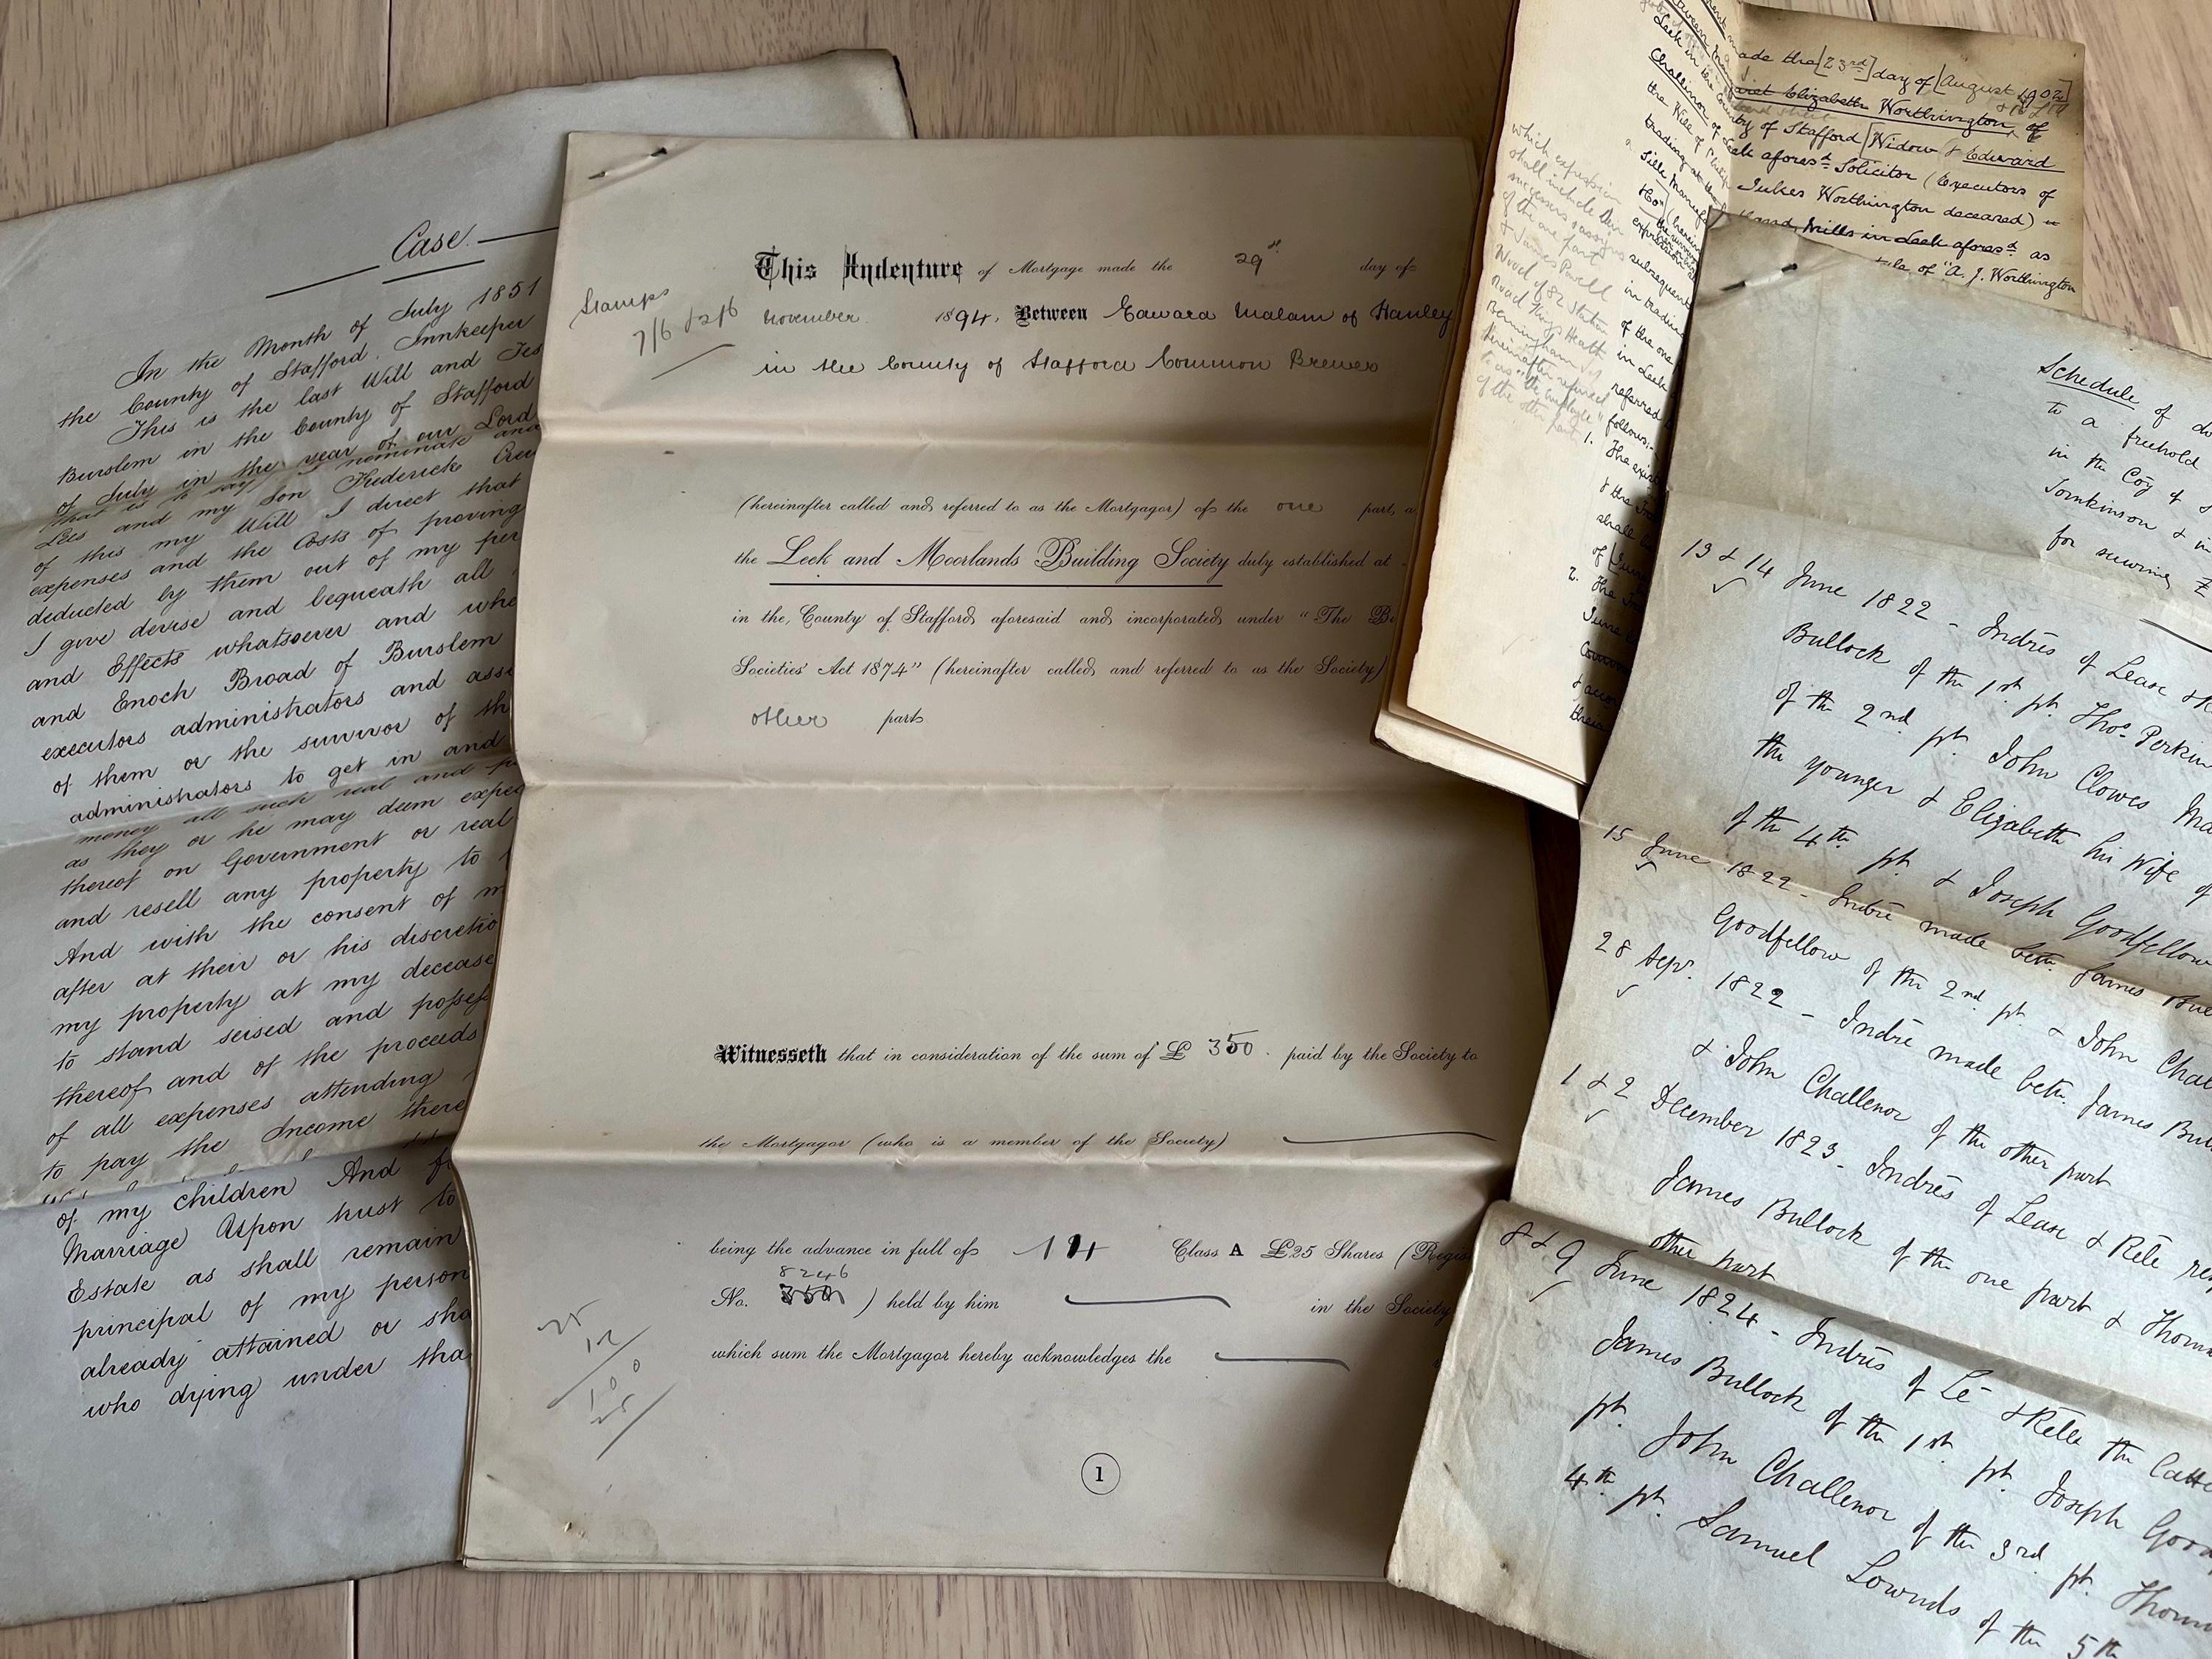 Case.
In the Month of July 1851
the County of Stafford. Innkeeper
This is the last Will and Tes
Burslem in the County of Stafford
of July in the year of our Lord
that is to say I nominate and
Lees and my Son Frederick
of this my Will I direct that
expenses and the Costs of proving
deducted by them out of my per
I give devise and bequeath all
and Effects whatsoever and whe
and Enoch Broad of Burslem
executors administrators and ass
of them or the survivor of th
administrators to get in and
money all such real and p
as they or he may deem exped
thereof on Government or real
and resell any property to
And with the consent of m
after at their or his discretio
my property at my decease
to stand seised and possess
thereof and of the proceeds
of all expenses attending
to pay the Income there
of my children And f
Marriage Upon trust to
Estate as shall remain
principal of my person
already attained or sha
who dying under tha
Stamps
7/6
This Indenture of Mortgage made the 29th day of
November 1894. Between Edward Malam of Hanley
in the County of Stafford Common Brewer
(hereinafter called and referred to as the Mortgagor) of the one part, a
the Leek and Moorlands Building Society duly established at
in the County of Stafford aforesaid and incorporated under "The B
Societies' Act 1874" (hereinafter called and referred to as the Society)
other part
Witnesseth that in consideration of the sum of £ 350. paid by the Society to
the Mortgagor (who is a member of the Society)
being the advance in full of 14 Class A £25 Shares (Regis
8246
No. 350 ) held by him in the Society
which sum the Mortgagor hereby acknowledges the
25
100
1
ade the [23rd] day of [August 190
riet Elizabeth Worthington of
Leek in the County of Stafford [Widow & Edward
Challinor of Leek afores'd Solicitor (Executors of
the Will of Philip Jukes Worthington deceared)
trading at the Mills in Leek afores'd as
Silk Manuf style of "A. J. Worthington
& Co"] (herein
which expression
shall include their
successors assigns
of the one part
& James Powell
Wood of 82 Station
Road Kings Heath
Birmingham
hereinafter referred
to as "the employee"
of the other part
expression
subsequent
in tradin
of the one
in Leek
referred
follows:-
1. The exis
shall be
2. The
June
Schedule of d
to a freehold
in the Coy of S
Tomkinson &
for securing £
13 & 14 June 1822 - Indres of Lease & R
Bullock of the 1st pt. Thos. Perkin
of the 2nd pt. John Clowes Ma
the younger & Elizabeth his Wife of
of the 4th pt & Joseph Goodfellow
15 June 1822 - Indre made betn. James
Goodfellow of the 2nd pt. & John Chal
28 Sepr. 1822 - Indre made betn. James Bul
& John Challenor of the other part
1 & 2 December 1823 - Indres of Lease & Rele re
James Bullock of the one part & Thoma
other part
8 & 9 June 1824 - Indres of Le & Rele the latte
James Bullock of the 1st pt. Joseph Good
pt. John Challenor of the 3rd pt. Thom
4th pt. Samuel Lownds of the 5th